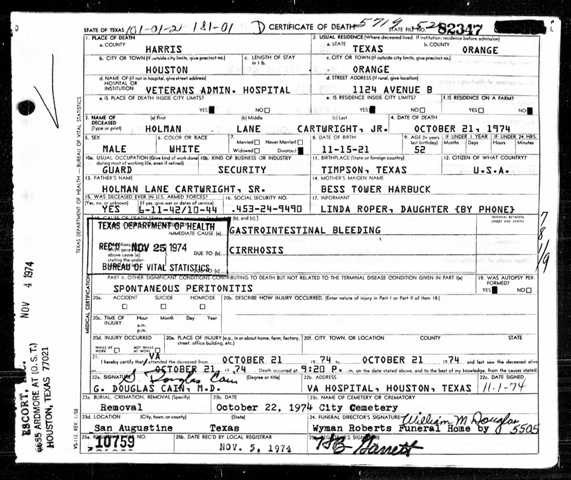 STATE OF TEXAS 101-01-21 181-01 D CERTIFICATE OF DEATH 5719 82347
1. PLACE OF DEATH 2. USUAL RESIDENCE (Where deceased lived. If institution: residence before admission)
a. COUNTY HARRIS a. STATE TEXAS b. COUNTY ORANGE
b. CITY OR TOWN (If outside city limits, give precinct no.) c. LENGTH OF STAY in 1b. c. CITY OR TOWN (If outside city limits, give precinct no.)
HOUSTON ORANGE
d. NAME OF (If not in hospital, give street address) HOSPITAL OR INSTITUTION d. STREET ADDRESS (If rural, give location)
VETERANS ADMIN. HOSPITAL 1124 AVENUE B
e. IS PLACE OF DEATH INSIDE CITY LIMITS? e. IS RESIDENCE INSIDE CITY LIMITS? f. IS RESIDENCE ON A FARM?
YES NO YES NO YES NO
3. NAME OF DECEASED (Type or print) (a) First (b) Middle (c) Last 4. DATE OF DEATH
HOLMAN LANE CARTWRIGHT, JR. OCTOBER 21, 1974
5. SEX 6. COLOR OR RACE 7. Married Never Married Widowed Divorced 8. DATE OF BIRTH 9. AGE (In years IF UNDER 1 YEAR IF UNDER 24 HRS.
Months Days Hours Min.
MALE WHITE 11-15-21 52
10a. USUAL OCCUPATION (Give kind of work done during most of working life, even if retired) 10b. KIND OF BUSINESS OR INDUSTRY 11. BIRTHPLACE (State or foreign country) 12. CITIZEN OF WHAT COUNTRY?
GUARD SECURITY TIMPSON, TEXAS U.S.A.
13. FATHER'S NAME 14. MOTHER'S MAIDEN NAME
HOLMAN LANE CARTWRIGHT, SR. BESS TOWER HARBUCK
15. WAS DECEASED EVER IN U.S. ARMED FORCES? (If yes, give war or dates of service) 16. SOCIAL SECURITY NO. 17. INFORMANT
YES 6-11-42/10-44 453-24-9490 LINDA ROPER, DAUGHTER {BY PHONE}
TEXAS DEPARTMENT OF HEALTH
IMMEDIATE CAUSE (a) GASTROINTESTINAL BLEEDING
REC'D NOV 25 1974
DUE TO (b) CIRRHOSIS
BUREAU OF VITAL STATISTICS
OTHER SIGNIFICANT CONDITIONS CONTRIBUTING TO DEATH BUT NOT RELATED TO THE TERMINAL DISEASE CONDITION GIVEN IN PART I (a) 19. WAS AUTOPSY PERFORMED?
SPONTANEOUS PERITONITIS YES NO
20a. ACCIDENT SUICIDE HOMICIDE 20b. DESCRIBE HOW INJURY OCCURRED. (Enter nature of injury in Part I or Part II of Item 18.)
20c. TIME OF INJURY Hour Month Day Year
a.m.
p.m.
20d. INJURY OCCURRED 20e. PLACE OF INJURY (e.g., in or about home, farm, factory, street, office building, etc.) 20f. CITY, TOWN, OR LOCATION COUNTY STATE
21. I hereby certify that VA attended the deceased from OCTOBER 21 1974 to OCTOBER 21 1974 and last saw
OCTOBER 21 1974 Death occurred at 9:20 P. m. on the date stated above, and to the best of my knowledge, from the causes stated.
22a. SIGNATURE G Douglas Cain (Degree or title) 22b. ADDRESS 22c. DATE SIGNED
G. DOUGLAS CAIN, M.D. VA HOSPITAL, HOUSTON, TEXAS 11-1-74
23a. BURIAL, CREMATION, REMOVAL (Specify) 23b. DATE 23c. NAME OF CEMETERY OR CREMATORY
Removal October 22, 1974 City Cemetery
23d. LOCATION (City, town, or county) (State) 24. FUNERAL DIRECTOR'S SIGNATURE William M Douglas
San Augustine Texas Wyman Roberts Funeral Home by 5505
25b. DATE REC'D BY LOCAL REGISTRAR
10759 NOV. 5, 1974 Garrett
TEXAS DEPARTMENT OF HEALTH — BUREAU OF VITAL STATISTICS
MEDICAL CERTIFICATION
NOV 4 1974
6655 ARDMORE AT (O.S.T.)
HOUSTON, TEXAS 77021